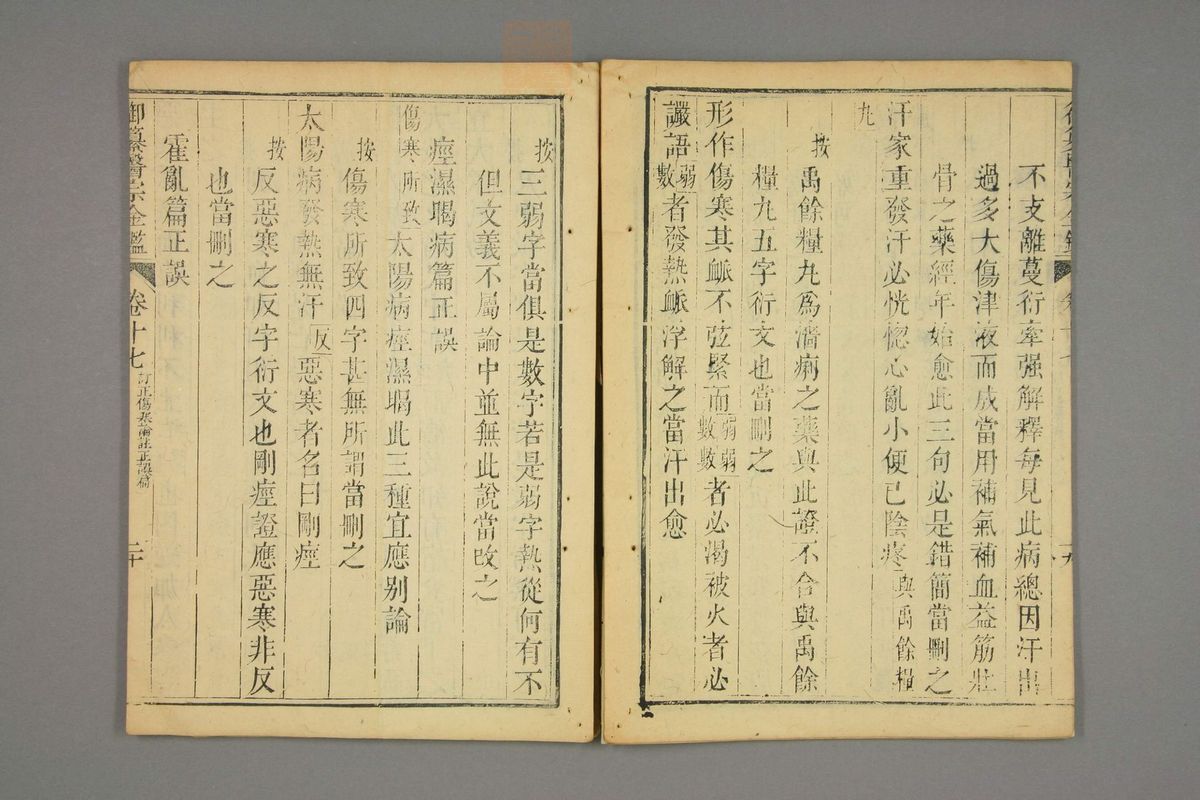 不支離蔓衍牽强解釋每見此病總因汗出
過多大傷津液而成當用補氣補血益筋壯
骨之藥經年始愈此三句必是錯簡當刪之
汗家重發汗必恍惚心亂小便已陰疼與禹餘糧
丸
按禹餘糧丸爲濇痢之藥與此證不合與禹餘
糧丸五字衍文也當刪之
形作傷寒其脈不弦緊而弱數弱數者必渴被火者必
讝語弱數者發熱脈浮解之當汗出愈
按三弱字當俱是數字若是弱字熱從何有不
但文義不屬論中並無此說當改之
痙濕暍病篇正誤
傷寒所致太陽病痙濕暍此三種宜應别論
按傷寒所致四字甚無所謂當刪之
太陽病發熱無汗反惡寒者名曰剛痙
按反惡寒之反字衍文也剛痙證應惡寒非反
也當刪之
霍亂篇正誤
御纂醫宗金鑑 卷十七 訂正傷寒論註正誤篇 二十